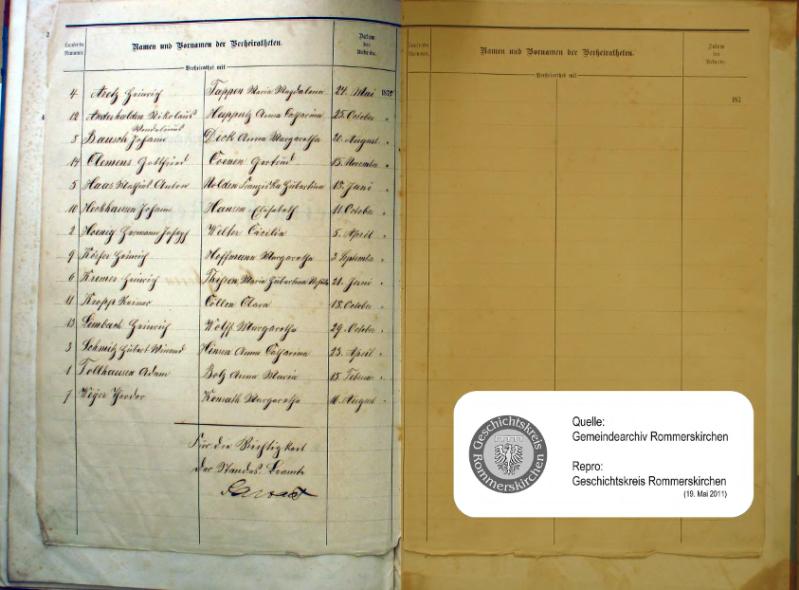 2
Laufende Nummer.
Namen und Vornamen der Verheiratheten.
Datum der Urkunde.
Verheirathet mit
4 Heinrich Tappen Maria Magdalena 24. Mai
12 Anderhalden Nikolaus Anna Catharina 25. October "
Wendelinus
8 Bausch Johann Deck Anna Margaretha 20. August "
14 Clemens Gottfried Coenen Gertrud 15. November "
5 Haas Anton Nolden Franziska Hubertina 13. Juni "
10 Heckhausen Johann Hansen Elisabeth 11. October "
2 Hoenig Hermann Joseph Welter Cäcilia 5. April "
9 Heinrich Hoffmann Margaretha 3. September "
6 Kremer Heinrich Theisen Maria Hubertina 21. Juni "
11 Kropp Reiner Cöllen Clara 18. October "
13 Limbach Heinrich Wolff Margaretha 29. October "
3 Schmitz Hubert Winand Hinsen Anna Catharina 23. April "
1 Tollhausen Adam Bolz Anna Maria 15. Februar "
7 Theodor Konrath Margaretha 16. August "
Für die Richtigkeit
Der Standes Beamte
Laufende Nummer.
Namen und Vornamen der Verheiratheten.
Datum der Urkunde.
Verheirathet mit
187
Geschichtskreis Rommerskirchen
Quelle:
Gemeindearchiv Rommerskirchen
Repro:
Geschichtskreis Rommerskirchen
(19. Mai 2011)